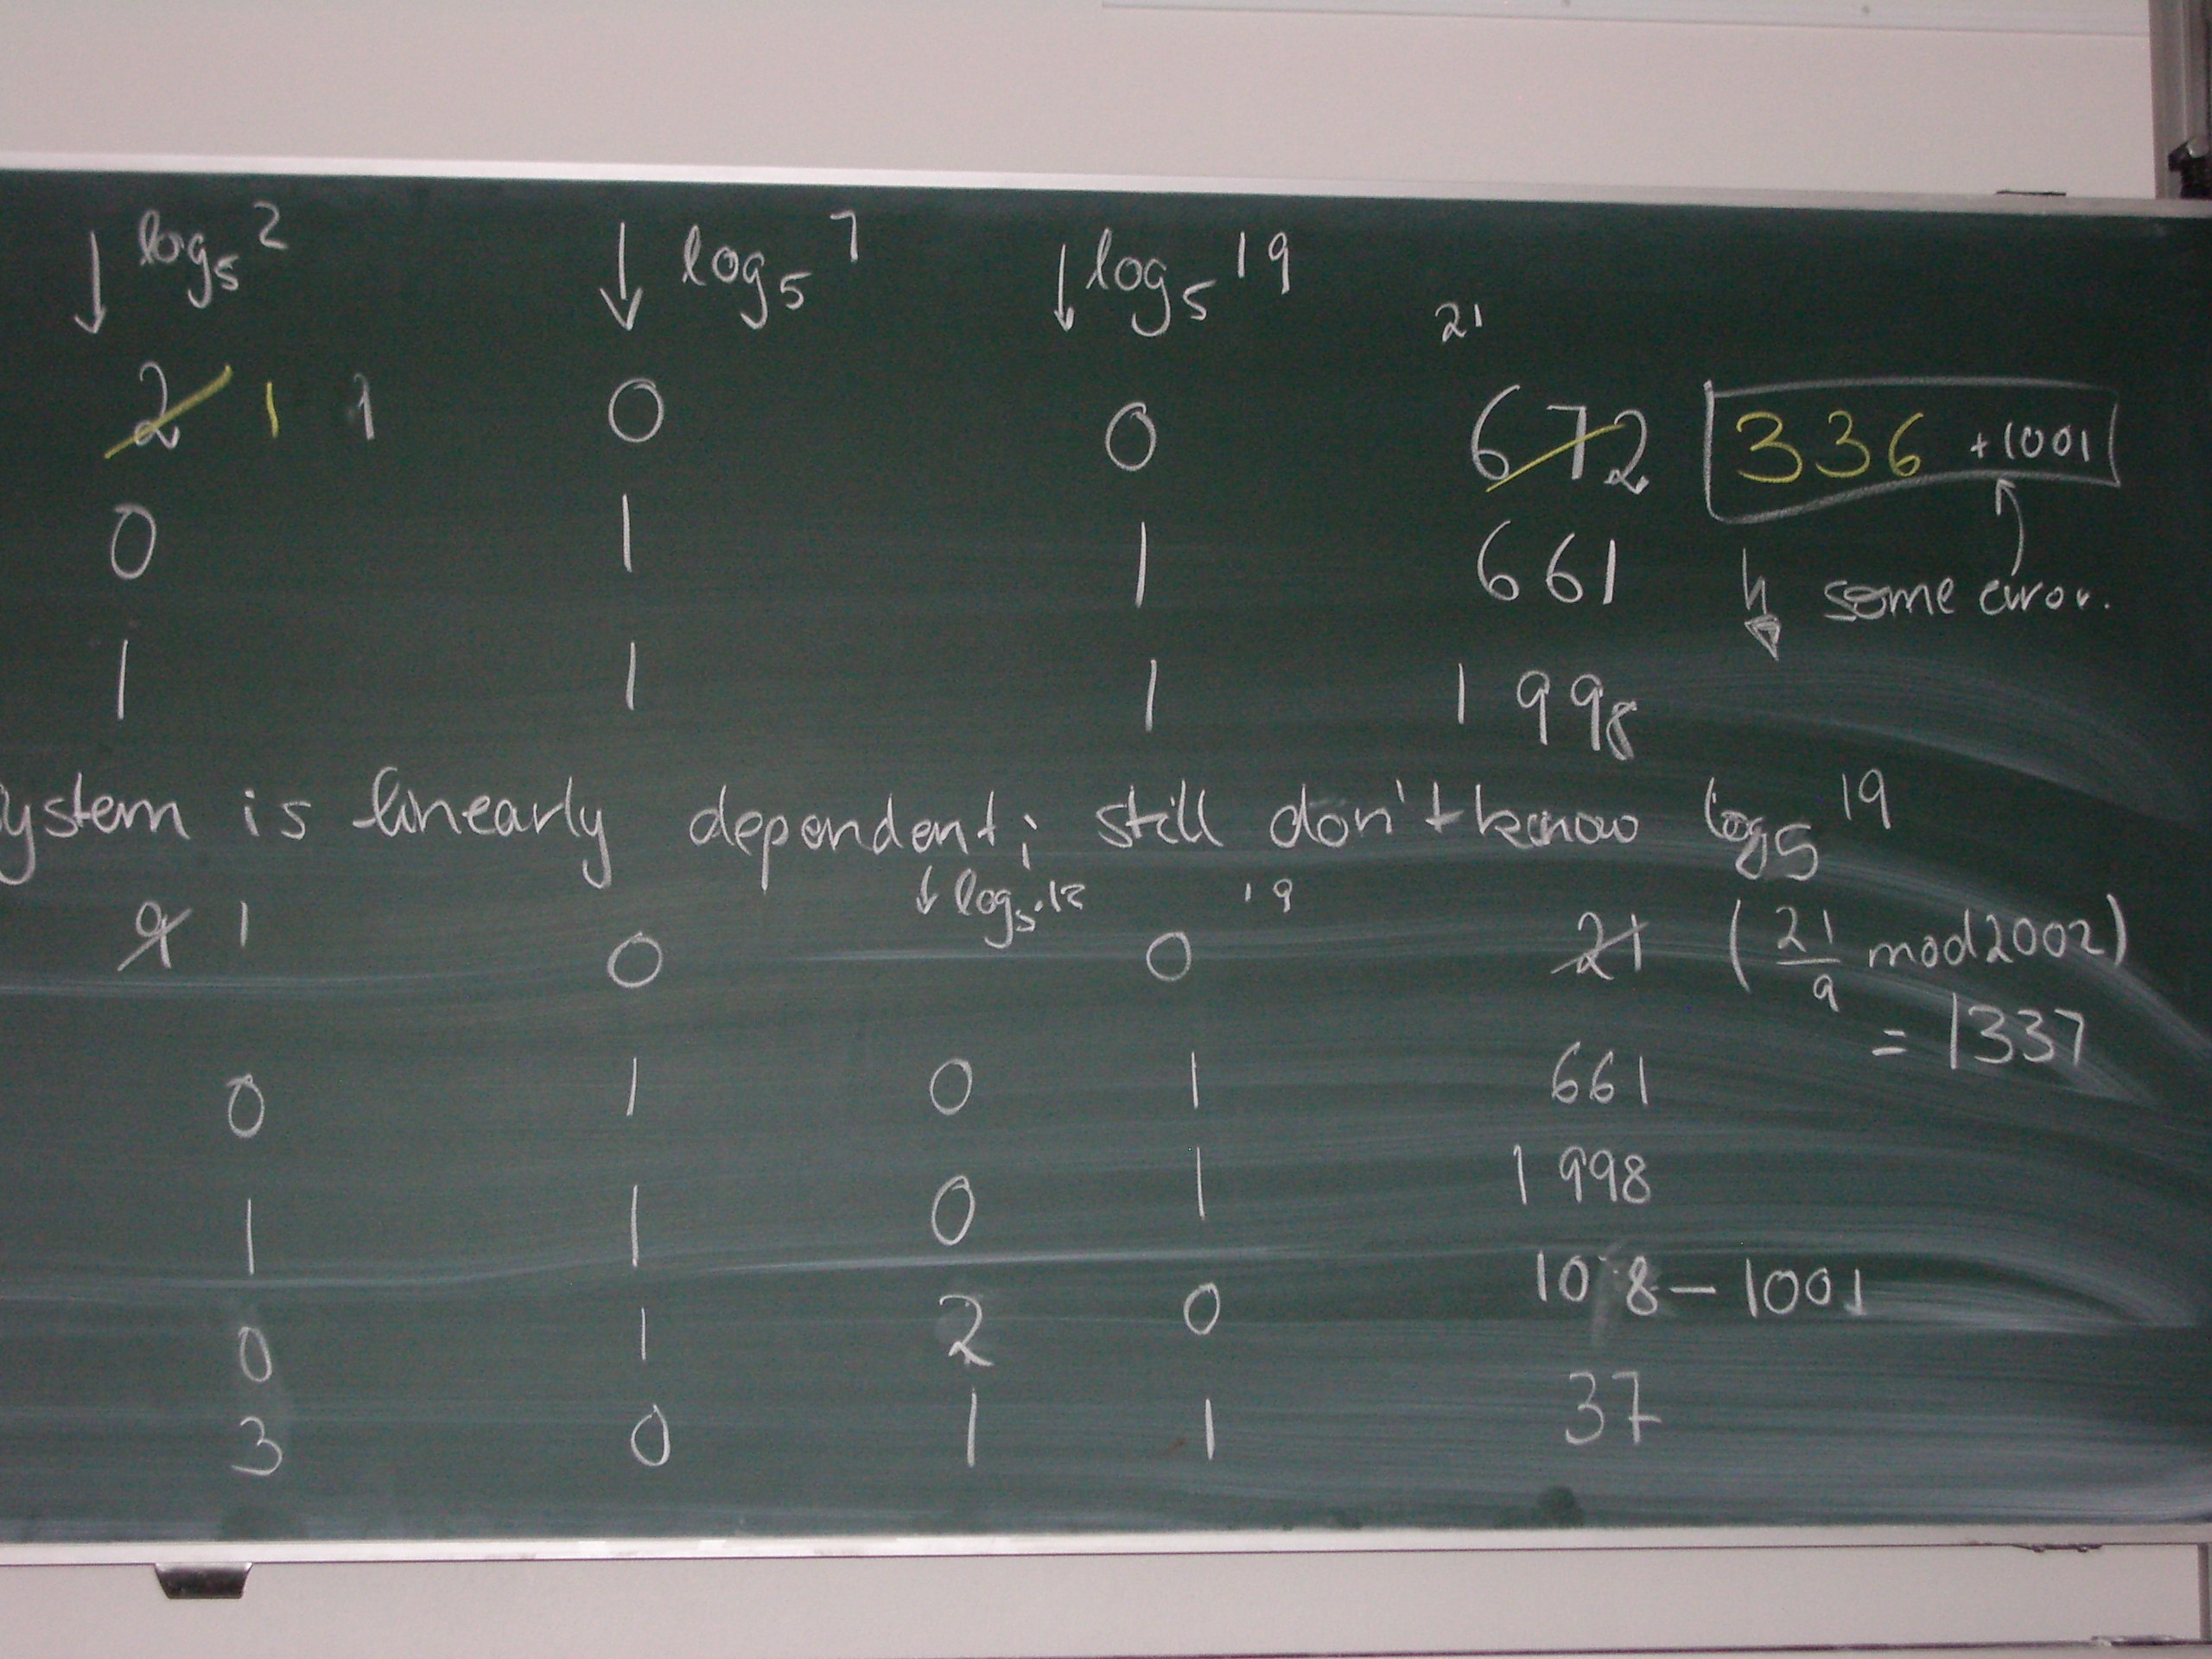 ↓ log₅ 2 ↓ log₅ 7 ↓ log₅ 19
21
2 1 1 0 0 672 336 +1001
0 1 1 661 some error.
1 1 1 1998
ystem is linearly dependent; still don't know log₅ 19
↓ log₅ 19
9 1 0 0 21 (21/9 mod 2002)
= 1337
0 1 0 1 661
1 1 0 1 1998
0 1 2 0 1008 – 1001
3 0 1 1 37